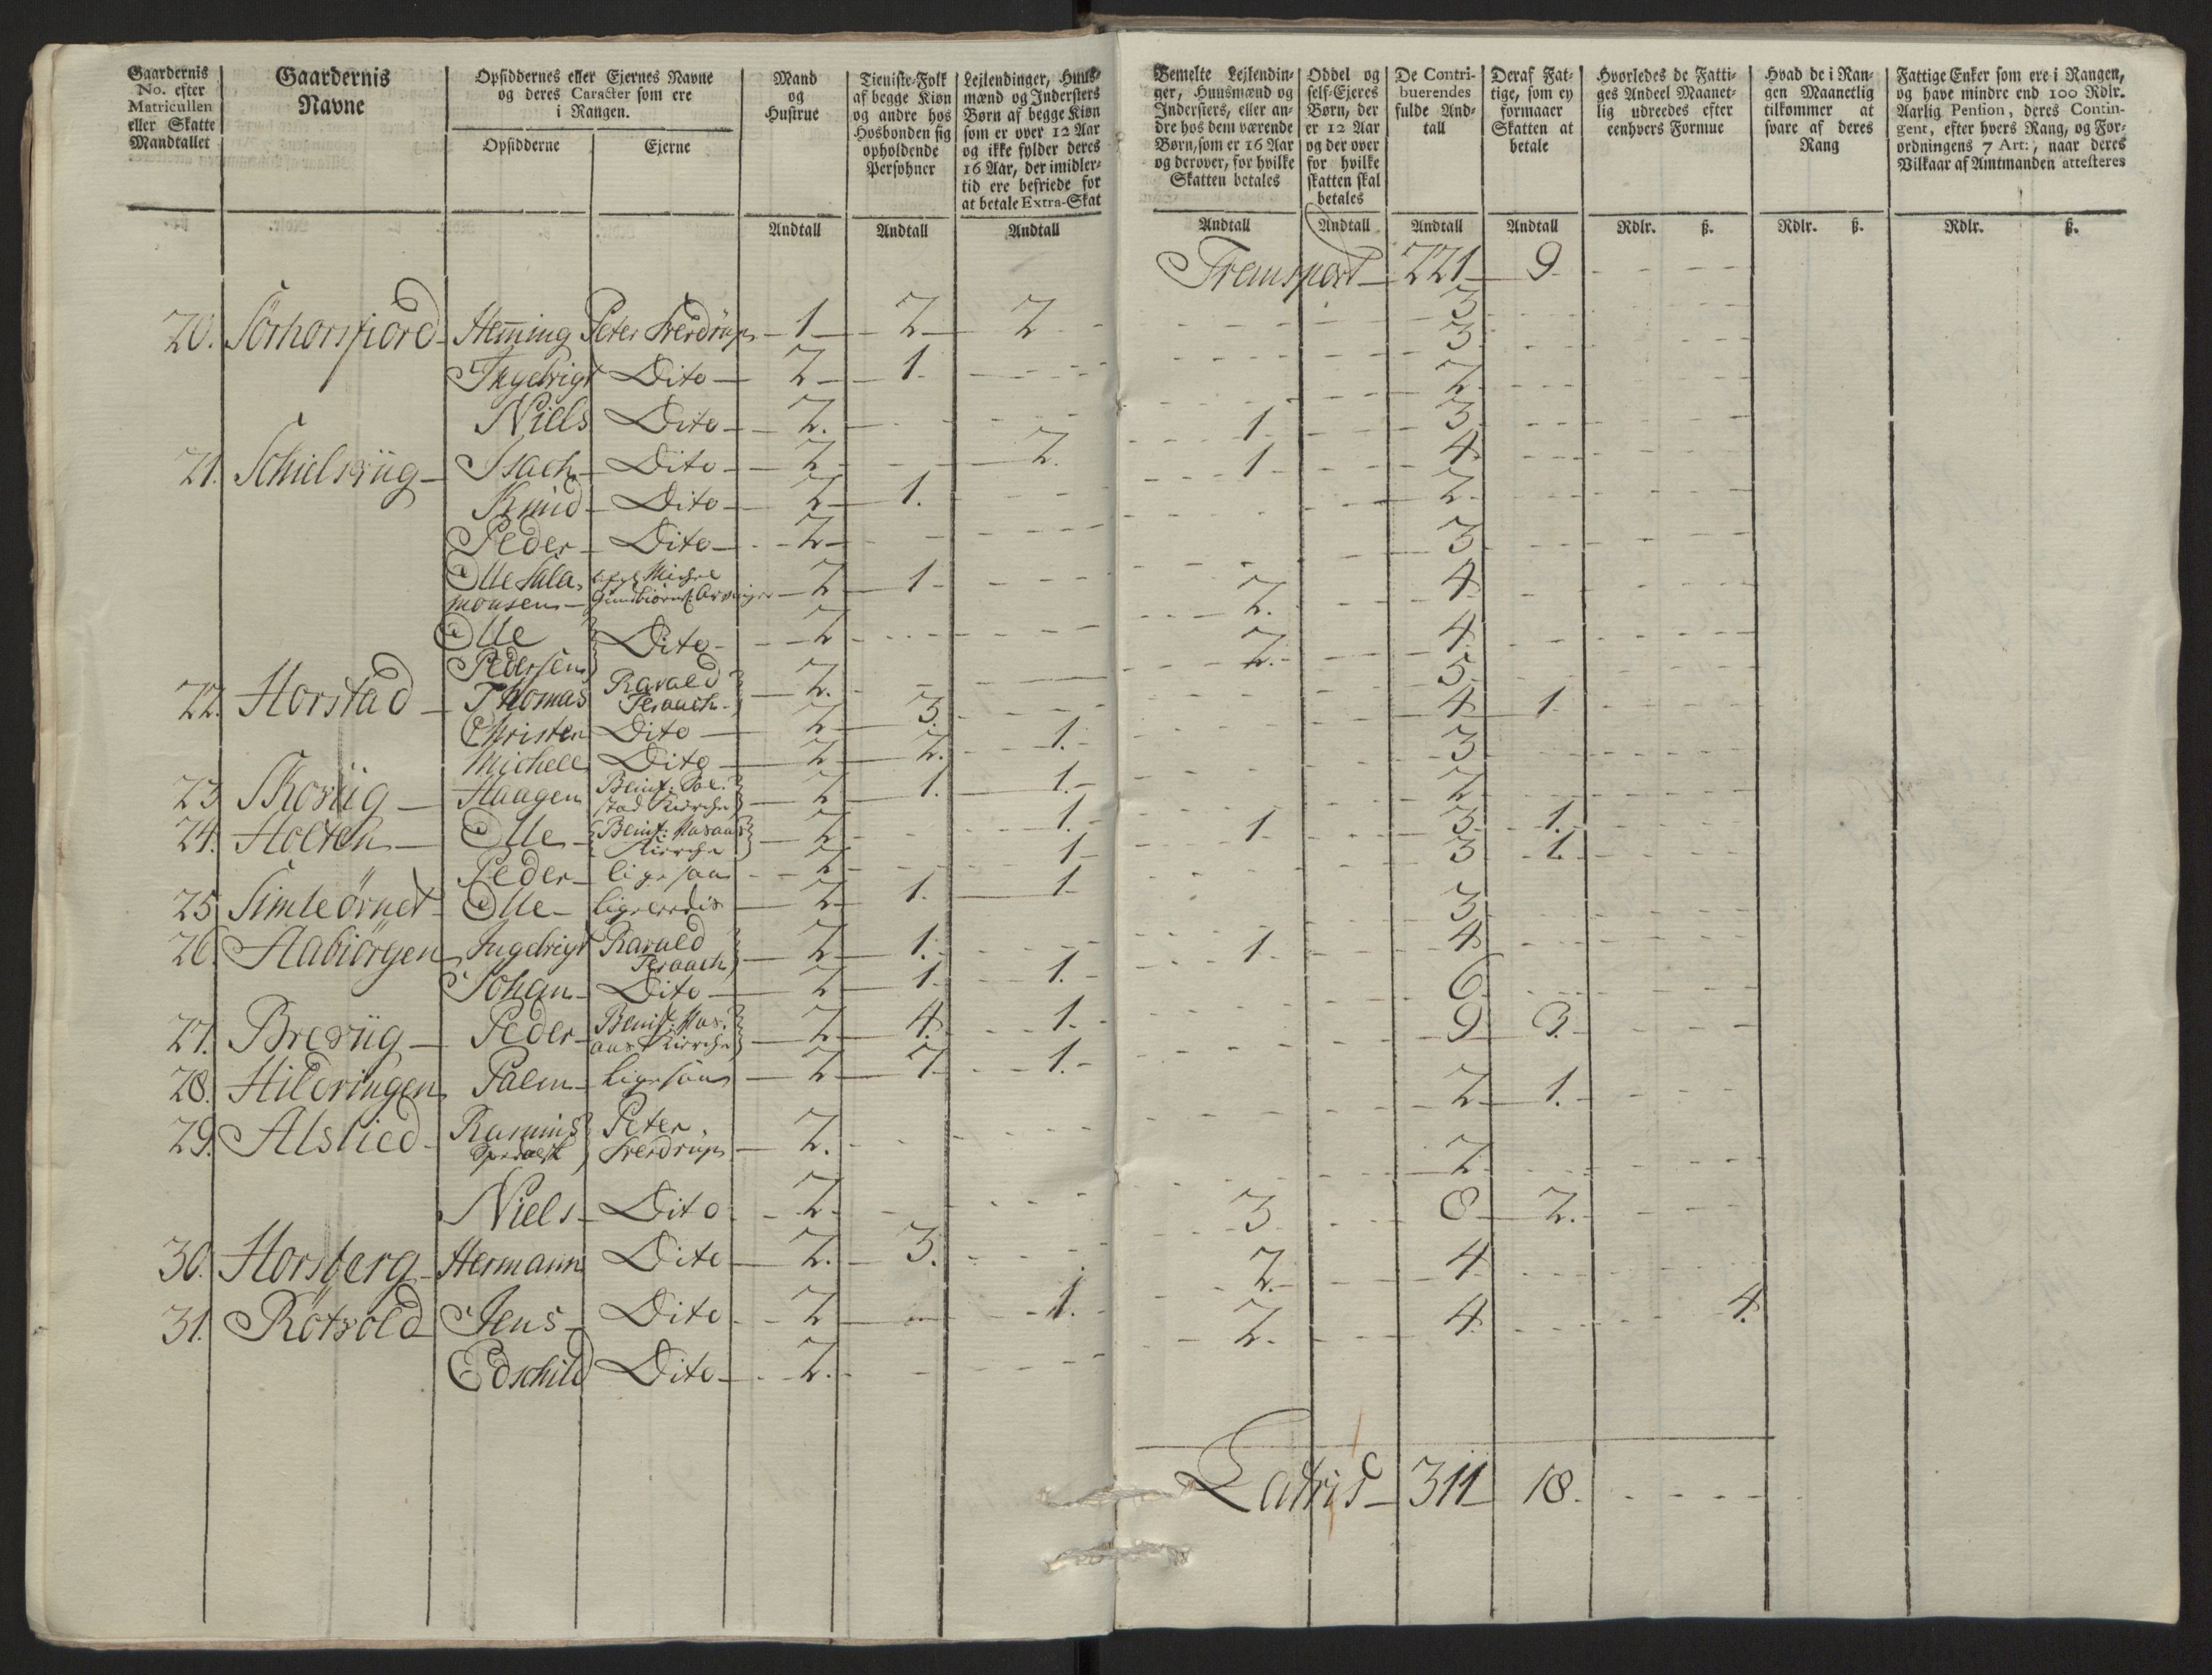 Gaardernis No. efter Matricullen eller Skatte Mandtallet
Gaardernis Navne
Opsiddernes eller Ejernes Navne og deres Caracter som ere i Rangen.
Opsidderne
Ejerne
Mand og Hustrue
Tieniste-Folk af begge Kiøn og andre hos Hosbonden sig opholdende Persohner
Lejlendinger, Huusmænd og Indersters Børn af begge Kiøn som er over 12 Aar og ikke fylder deres 16 Aar, der imidlertid ere befriede for at betale Extra-Skat
Andtall Andtall Andtall
20. Sörhorsfiord Heming Peter Sverdrup 1 2 2
Ingebrigt Dito 2 1.
Niels Dito 2.
21. Schielsviig Isach Dito 2 2.
Knud Dito 2 1.
Peder Dito 2
Olle Sala Michel
monsen 2 1
Olle Dito 2
Pedersen
22. Horstad Thomas Harald 2.
Christen Dito 2 3.
Michell Dito 2 2. 1.
23 Skoviig Haagen 2 1. 1.
24. Holten Olle 2 1.
Kirche
Peder lige saa 2 1
25 Simleörnet Olle ligeledis 2 1. 1
26 Aabiörgen Ingebrigt Harald 2 1.
Johan Dito 2 1 1.
27. Breviig Peder 2 4. 1.
Kirche
28. Hildringen Palm ligesaa 2 7. 1.
29. Alslied Rasmus Peter 2.
Sverdrup
Niels Dito 2
30. Horsberg Hermann Dito 2. 3.
31. Rötvold Jens Dito 2 1.
Edschild Dito 2.
Bemelte Lejlendinger, Huusmænd og Indersters, eller andre hos dem værende Børn, som er 16 Aar og derover, for hvilke Skatten betales
Oddel og self-Ejeres Børn, der er 12 Aar og der over for hvilke skatten skal betales
De Contribuerendes fulde Andtall
Deraf Fattige, som ey formaaer Skatten at betale
Hvorledes de Fattiges Andeel Maanetlig udreedes efter eenhvers Formue
Hvad de i Rangen Maanetlig tilkommer at svare af deres Rang
Fattige Enker som ere i Rangen, og have mindre end 100 Rdlr. Aarlig Pension, deres Contingent, efter hvers Rang, og Forordningens 7 Art:, naar deres Vilkaar af Amtmanden attesteres
Andtall Andtall Andtall Andtall Rdlr. ß. Rdlr. ß. Rdlr. ß.
Transport 221 9
3
3
2
1 3
1 4
2
3
2. 4
2. 4
5
4 1
3
2
1 3 1.
3 1.
3
1 4
6
9 3.
2 1.
2
3 8 2.
2. 4
2. 4 4.
Latris 311 18.